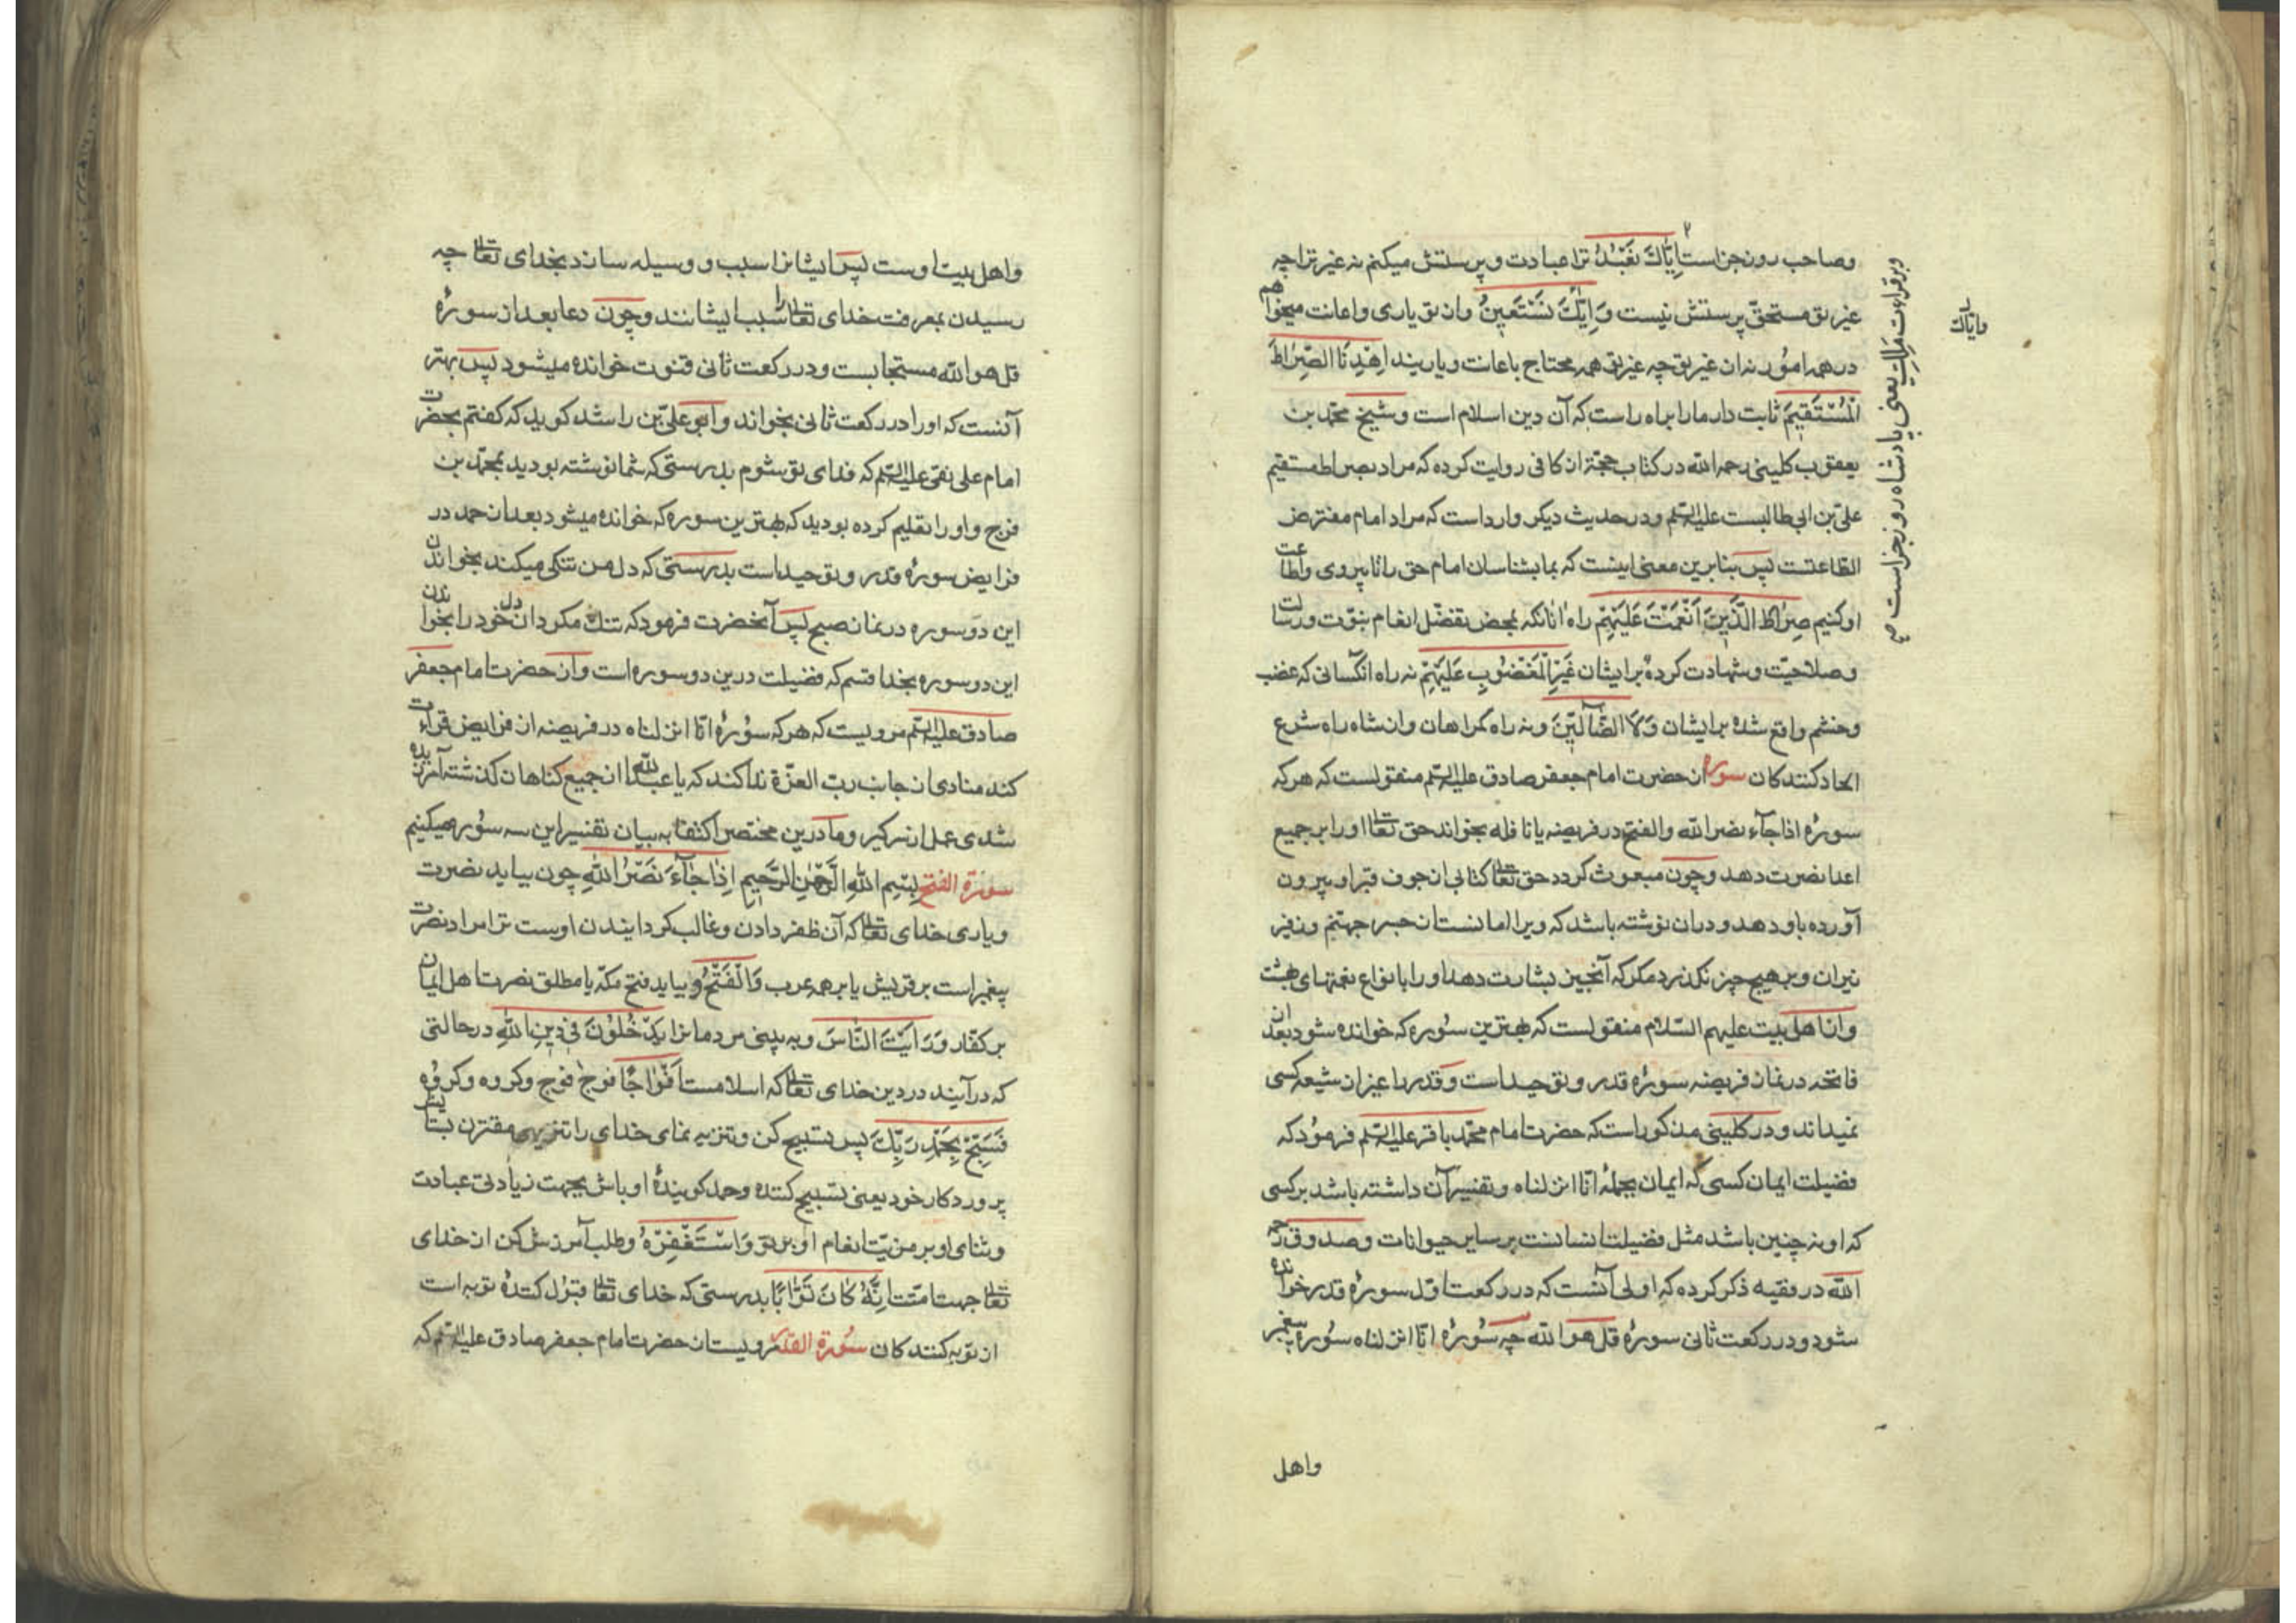 وصاحب روز جزاست اِیّٰاكَ نَعْبُدُ ترا عبادت و پرستش میکنم نه غیر ترا چه
غیر تو مستحقّ پرستش نیست وَ اِیّٰاكَ نَسْتَعِینُ واز تو یاری و اعانت میخواهم
در همه امور نه از غیر تو چه غیر تو همه محتاج باعانت و یاریند اِهْدِنَا الصِّرٰاطَ
الْمُسْتَقِیمَ ثابت دار ما را براه راست که آن دین اسلام است و شیخ محمّد بن
یعقوب کلینی رحمه الله در کتاب حجّة از کافی روایت کرده که مراد بصراط مستقیم
علیّ بن ابی طالبست علیه السّلم و در حدیث دیکر وارد است که مراد امام مفترض
الطاعتست پس بنابرین معنی اینست که بما بشناسان امام حق را تا پیروی و اطاعت
او کنیم صِرٰاطَ الَّذِینَ اَنْعَمْتَ عَلَیْهِمْ راه آنانکه بمحض تفضّل انعام نبوّت و رسالت
و صلاحیّت و شهادت کردهٔ بر ایشان غَیْرِ الْمَغْضُوبِ عَلَیْهِمْ نه راه آنکسانی که غضب
و خشم واقع شده بر ایشان وَلَا الضّٰالّٓینَ و نه راه کمراهان و از شاه راه شرع
الحاد کنندکان سوره از حضرت امام جعفر صادق علیه السّلم منقولست که هر که
سورهٔ اذا جآء نصر الله والفتح در فریضه یا نافله بخواند حق تعالی او را بر جمیع
اعدا نصرت دهد و چون مبعوث کردد حق تعالی کتابی از جوف قبر او بیرون
آورده باو دهد و در آن نوشته باشد که ویرا امانست از حبس جهنّم و زفیر
نیران و بر هیچ چیز نکذرد مکر که آنچیز بشارت دهد او را بانواع نعمتهای بهشت
و از اهل بیت علیهم السّلام منقولست که بهترین سوره که خوانده شود بعد از
فاتحه در نماز فریضه سورهٔ قدر و توحید است و قدر را غیر از شیعه کسی
نمیداند و در کلینی مذکور است که حضرت امام محمّد باقر علیه السّلم فرمود که
فضیلت ایمان کسی که ایمان بجملهٔ انّا انزلناه و تفسیر آن داشته باشد بر کسی
که او نه چنین باشد مثل فضیلت انسانست بر سایر حیوانات و صدوق رحمه
الله در فقیه ذکر کرده که اولی آنست که در رکعت اوّل سورهٔ قدر خوانده
شود و در رکعت ثانی سورهٔ قل هو الله چه سورهٔ انّا انزلناه سورهٔ پیغمبر
واهل
وایّاك
وبر قراءت مَلِك یعنی پادشاه روز جزا است صح
واهل بیت اوست پس ایشانرا سبب و وسیله سازد بخدای تعالی چه
رسیدن بمعرفت خدای تعالی را سبب ایشانند و چون دعا بعد از سورهٔ
قل هو الله مستجابست و در رکعت ثانی قنوت خوانده میشود پس بهتر
آنست که او را در رکعت ثانی بخواند و ابو علیّ بن راشد کوید که کفتم بحضرت
امام علی نقی علیه السّلم که فدای تو شوم بدرستی که شما نوشته بودید بمحمّد بن
فرج و او را تعلیم کرده بودید که بهترین سوره که خوانده میشود بعد از حمد در
فرایض سورهٔ قدر و توحید است بدرستی که دل من تنکی میکند بخواندن
این دو سوره در نماز صبح پس آنحضرت فرمود که تنك مکردان دل خود را بخواندن
این دو سوره بخدا قسم که فضیلت درین دو سوره است و از حضرت امام جعفر
صادق علیه السّلم مرویست که هر که سورهٔ انّا انزلناه در فریضه از فرایض قراءت
کند منادی از جانب ربّ العزّة ندا کند که یا عبد الله از جمیع کناهان کذشته آمرزیده
شدی عمل از سر کیر و ما درین مختصر اکتفا به بیان تفسیر این سه سوره میکنیم
سورة الفتح بِسْمِ اللهِ الرَّحْمٰنِ الرَّحِیمِ اِذٰا جٰآءَ نَصْرُ اللهِ چون بیاید نصرت
و یاری خدای تعالی که آن ظفر دادن و غالب کردانیدن اوست ترا مراد نصرت
پیغمبر است بر قریش یا بر همه عرب وَالْفَتْحُ و بیاید فتح مکّه یا مطلق نصرت اهل ایمان
بر کفّار وَرَاَیْتَ النّٰاسَ و به بینی مردمانرا یَدْخُلُونَ فِی دِینِ اللهِ در حالتی
که در آیند در دین خدای تعالی که اسلامست اَفْوٰاجًا فوج فوج و کروه و کروه
فَسَبِّحْ بِحَمْدِ رَبِّكَ پس تسبیح کن و تنزیه نمای خدای را تنزیهی مقترن بستایش
پروردکار خود یعنی تسبیح کننده و حمد کویندهٔ او باش بجهت زیادتی عبادت
و ثنای او بر مزیّت انعام او بر تو وَاسْتَغْفِرْهُ و طلب آمرزش کن از خدای
تعالی جهت امّتت اِنَّهُ کٰانَ تَوّٰابًا بدرستی که خدای تعالی قبول کنندهٔ توبه است
از توبه کنندکان سورة القدر مرویست از حضرت امام جعفر صادق علیه السّلم که